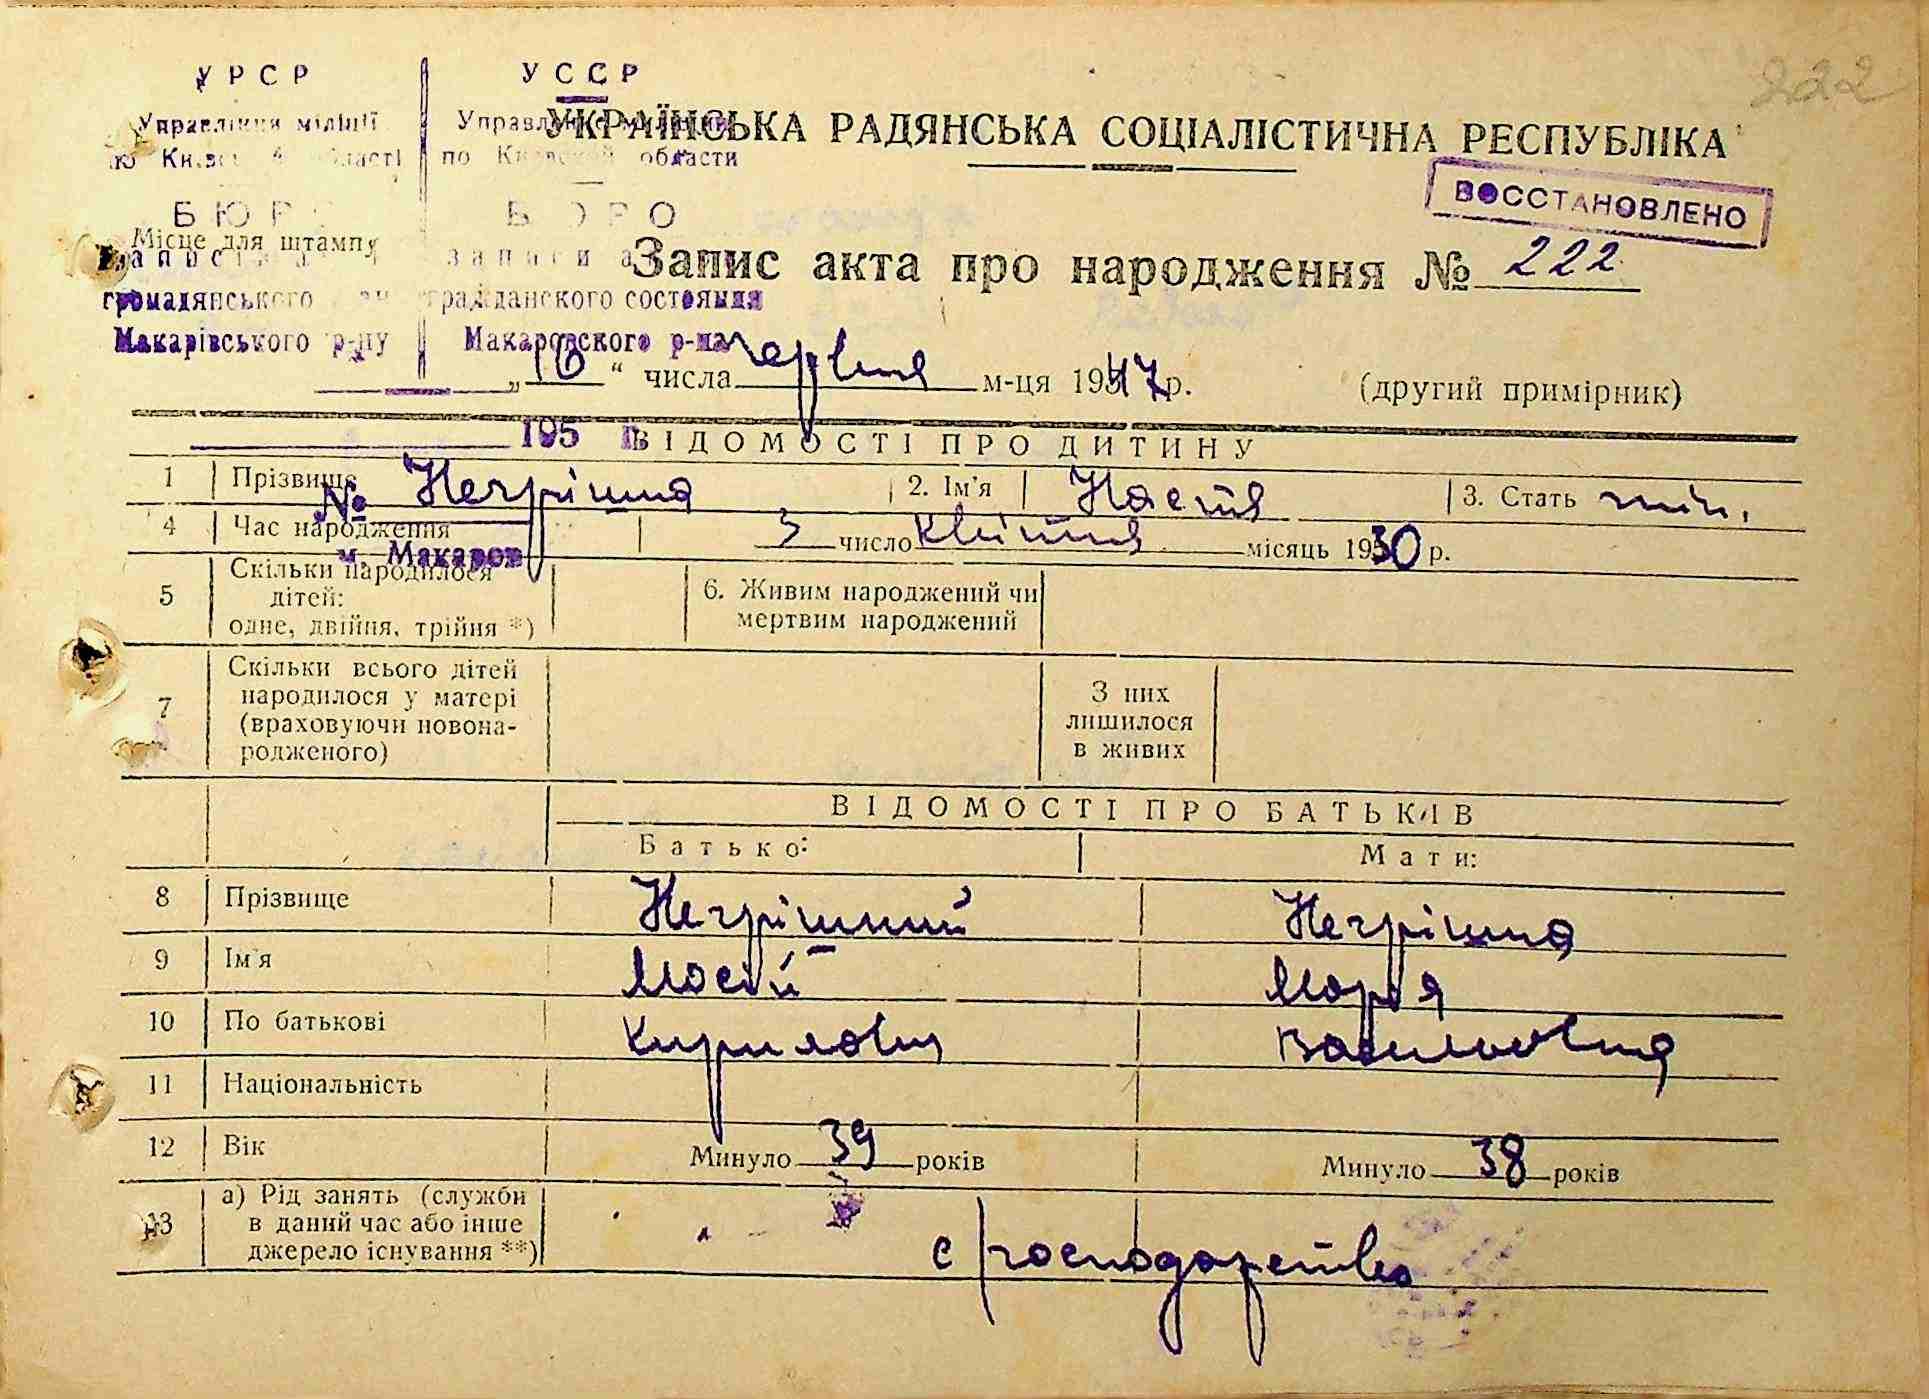 222
УРСР
УССР
Управління міліції
Управление милиции
УКРАЇНСЬКА РАДЯНСЬКА СОЦІАЛІСТИЧНА РЕСПУБЛІКА
по Київській області
по Киевской области
ВОССТАНОВЛЕНО
БЮРО
БЮРО
Місце для штампу
записи а
Запис акта про народження № 222
громадянського
гражданского состояния
Макарівського р-ну
Макаровского р-на
„16“ числа червня м-ця 1947 р. (другий примірник)
195
ВІДОМОСТІ ПРО ДИТИНУ
1 Прізвище Негрішна 2. Ім'я Настя 3. Стать жін.
№
4 Час народження 3 число квітня місяць 1930 р.
м. Макаров
5 Скільки народилося дітей: одне, двійня, трійня *) 6. Живим народжений чи мертвим народжений
7 Скільки всього дітей народилося у матері (враховуючи новонародженого) З них лишилося в живих
ВІДОМОСТІ ПРО БАТЬКІВ
Батько: Мати:
8 Прізвище Негрішний Негрішна
9 Ім'я Мосій Марія
10 По батькові Кирилович Васильовна
11 Національність
12 Вік Минуло 39 років Минуло 38 років
13 а) Рід занять (служби в даний час або інше джерело існування **) с/господарство